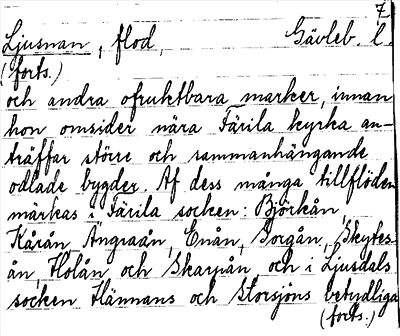 7.
Ljusnan, flod, Gävleb. l.
(forts.)
och andra ofruktbara marker, innan
hon omsider nära Färila kyrka an-
träffar större och sammanhängande
odlade bygder. Af dess många tillflöden
märkas i Färila socken: Björkån,
Kårån, Ängraån, Enån, Gorgån, Skytes-
ån, Holån och Skarjån, och i Ljusdals
socken Hännans och Storsjöns betydliga
(forts.)